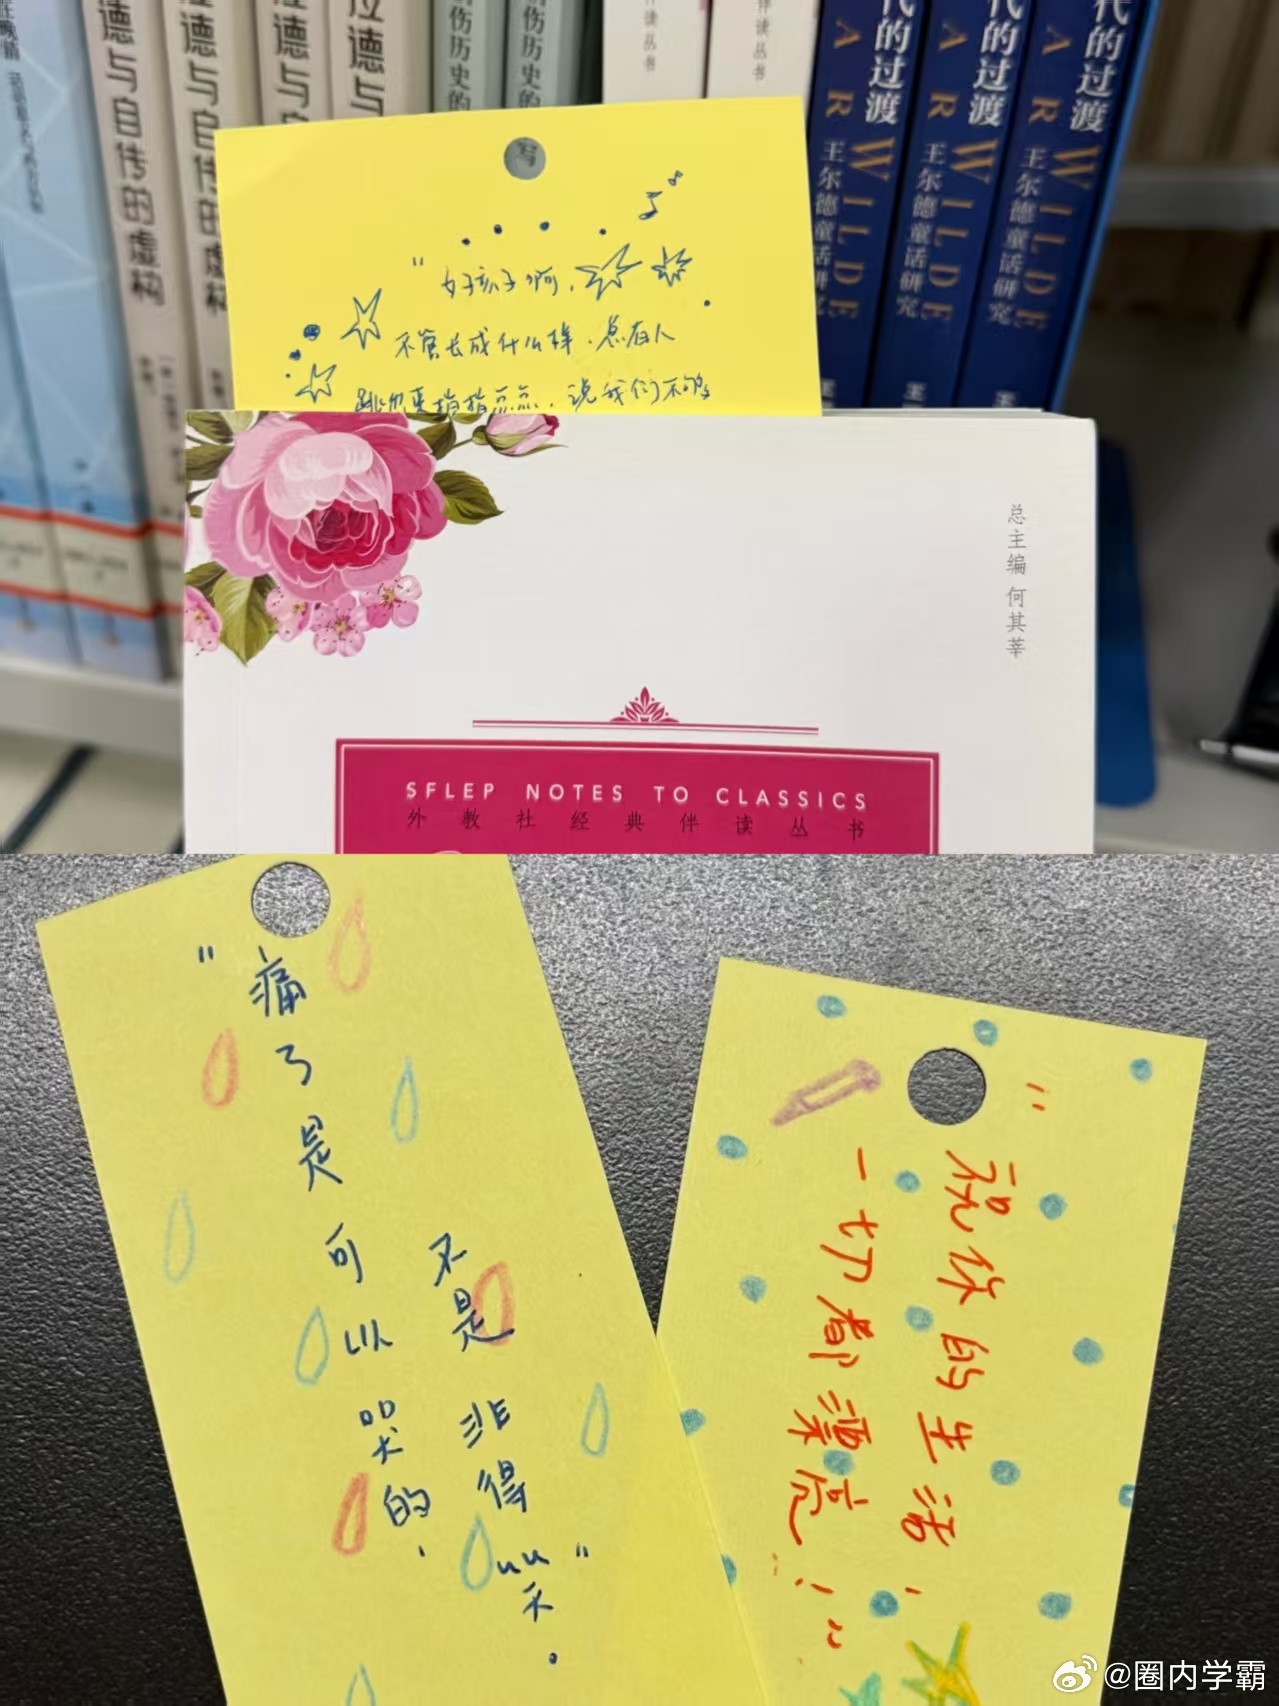 拉德与自传的虚构
德与自传的虚构
德与
拉德与
伤历史的
创伤历史的
伴读丛书
伴读丛书
代的过渡
代的过渡
代的过渡
WILDE
WILDE
WILDE
王尔德童话研究
王尔德童话研究
王尔德童话研究
写
"好孩子啊,
不管长成什么样,总有人
跳出来指指点点,说我们不够
总主编 何其莘
SFLEP NOTES TO CLASSICS
外教社经典伴读丛书
"痛了是可以哭的,
不是非得哭不。"
"祝你的生活,
一切都漂亮!"
@圈内学霸